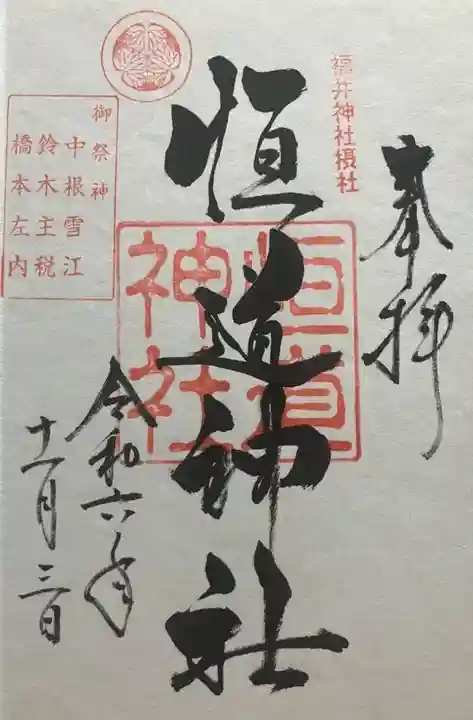 奉拝
福井神社摂社
恒道神社
恒道
神社
御祭神
中根雪江
鈴木主税
橋本左内
令和六年
十一月三日